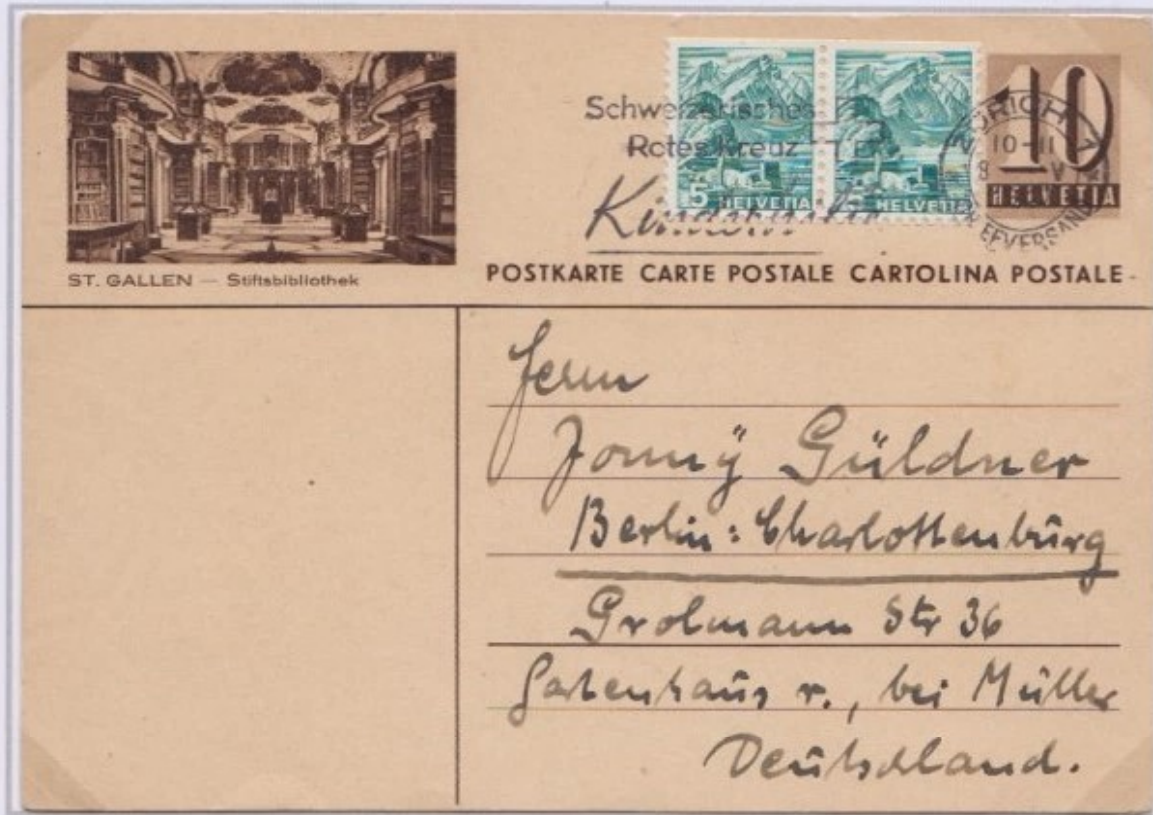 ST. GALLEN — Stiftsbibliothek
Schweizerisches
Rotes Kreuz
5 HELVETIA
HELVETIA
10
HELVETIA
ZÜRICH
10-11
POSTKARTE CARTE POSTALE CARTOLINA POSTALE
Herrn
Jonnÿ Güldner
Berlin: Charlottenburg
Grolmann Str 36
Gartenhaus r., bei Müller
Deutschland.